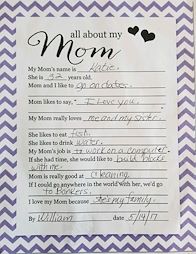 all about my
Mom
My Mom's name is Katie.
She is 32 years old.
Mom and I like to go on dates.
Mom likes to say, I Love you.
My Mom really loves me and my sister.
She likes to eat fish.
She likes to drink water.
My Mom's job is to work on a computer.
If she had time, she would like to build blocks
with me.
Mom is really good at Cleaning
If I could go anywhere in the world with her, we'd go
to Bonkers.
I love my Mom because she's my family.
By William date 5/14/17